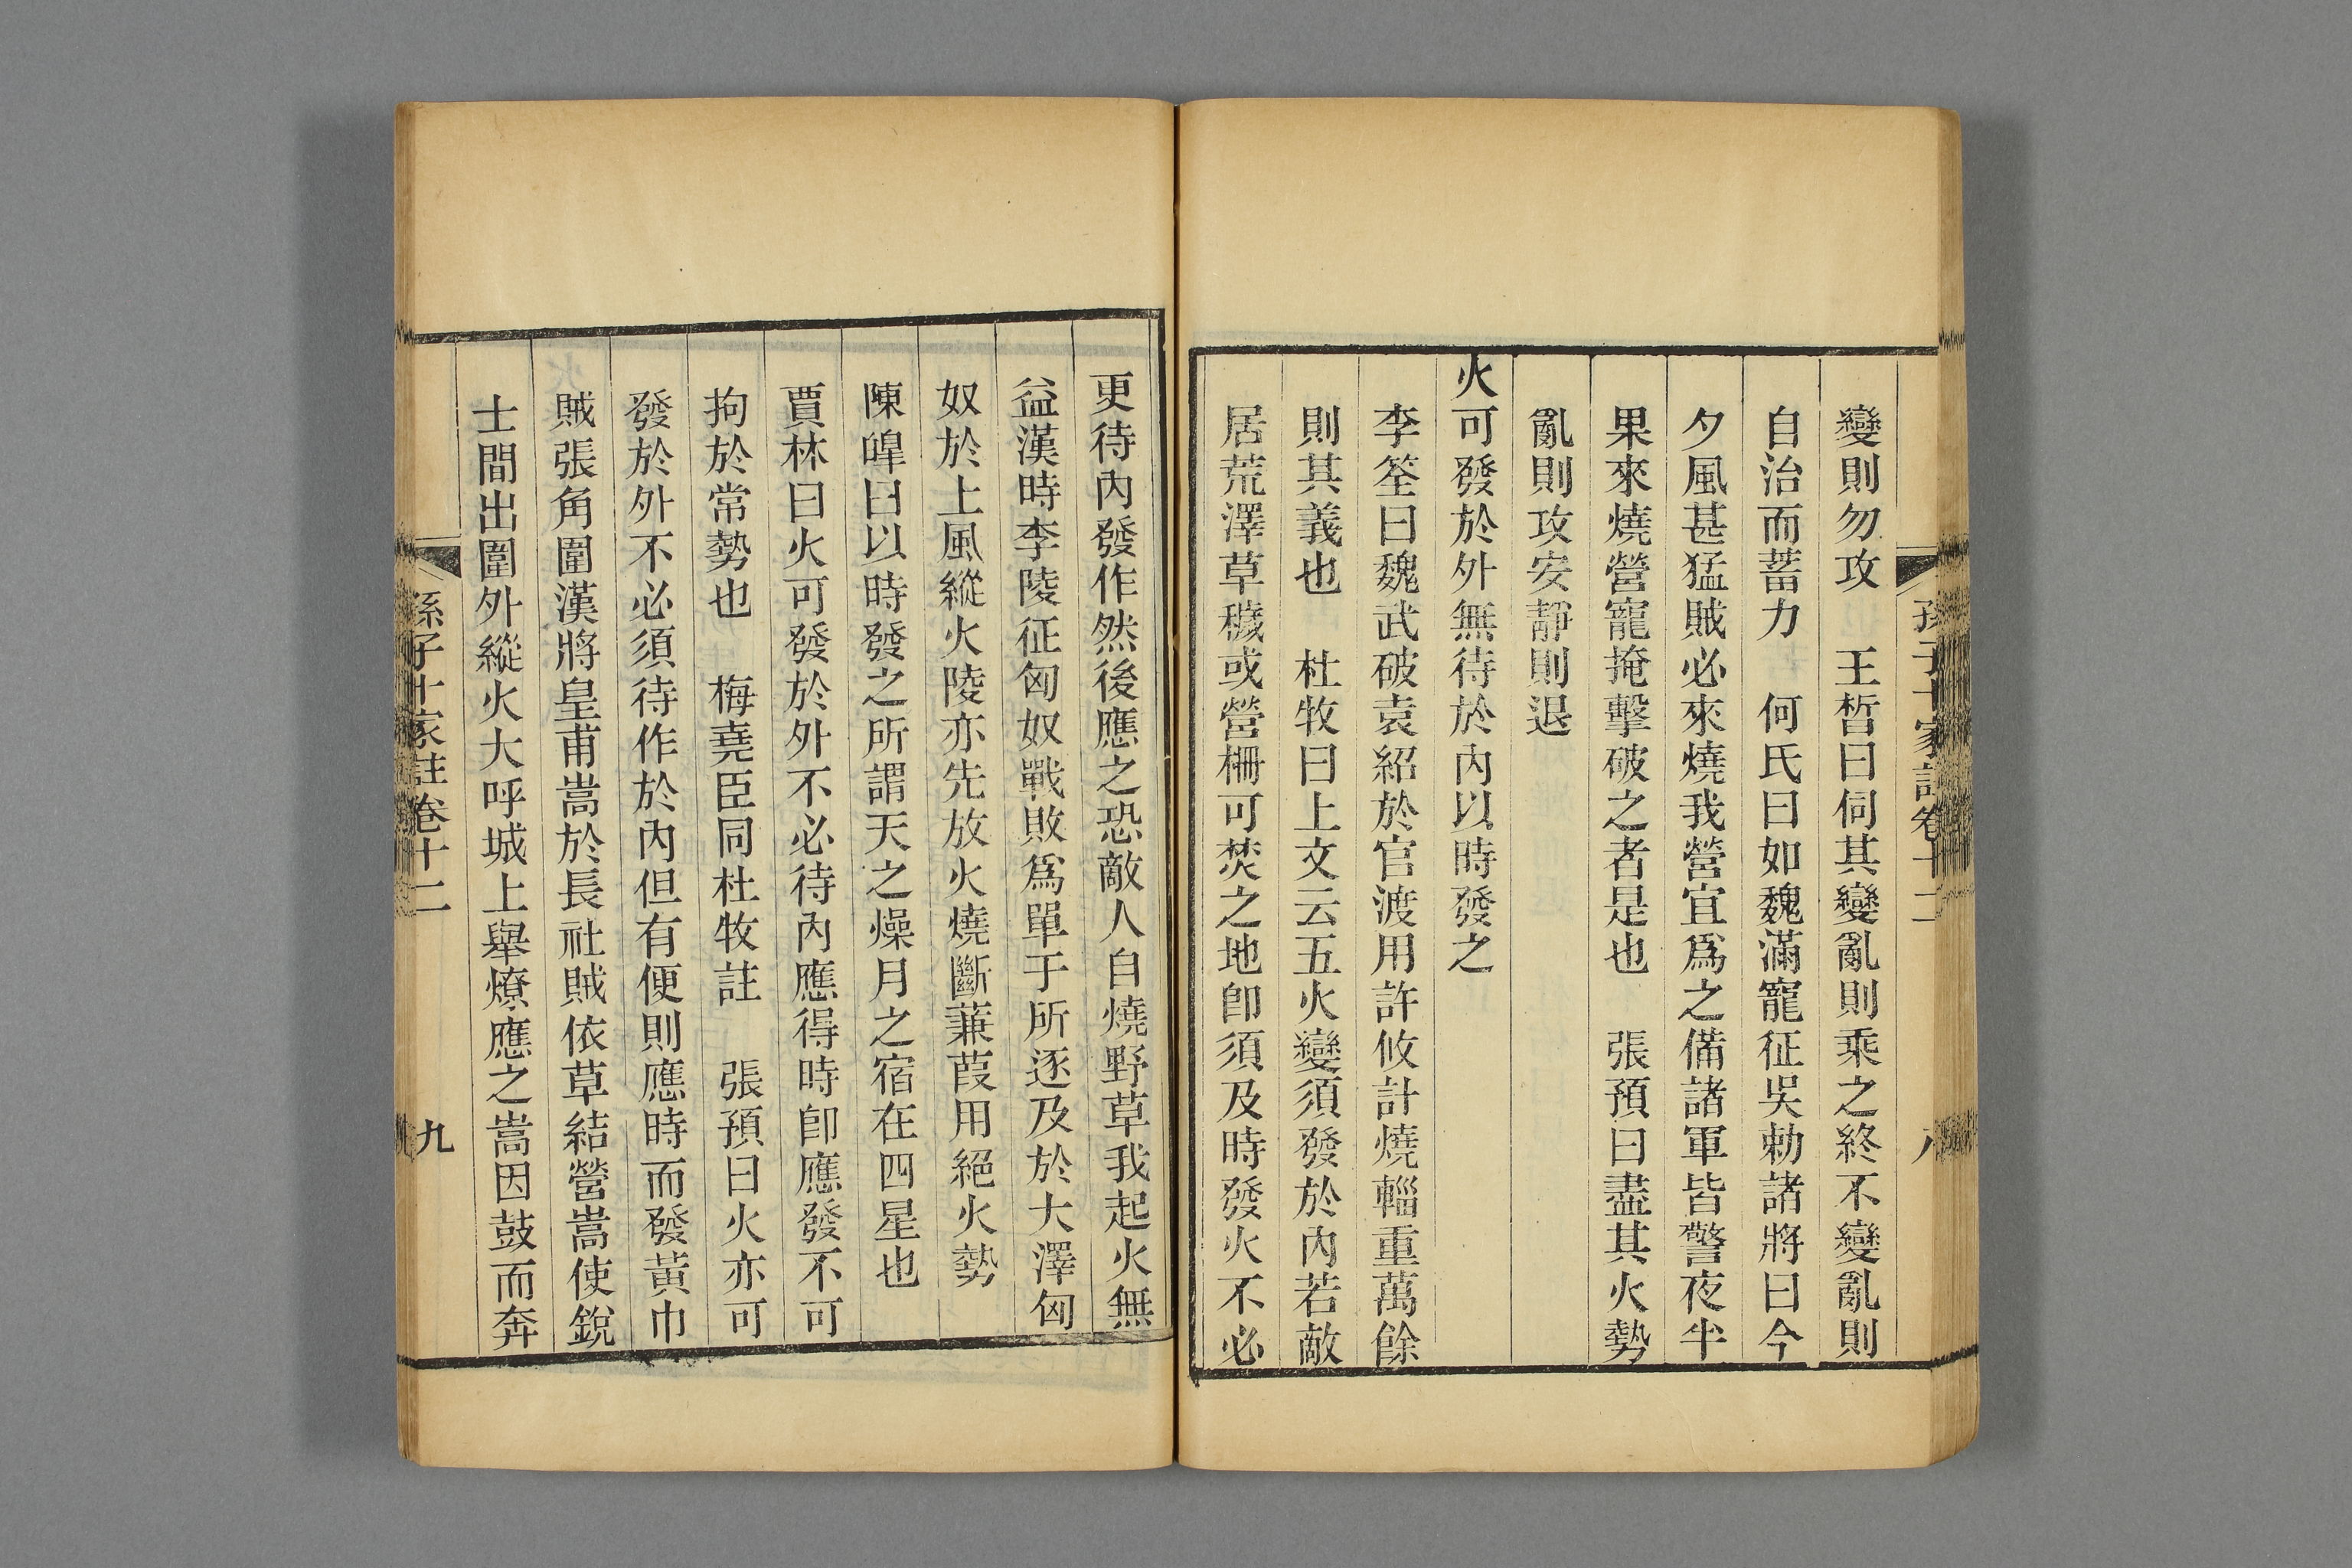 孫子十家註卷十二 八
變則勿攻 王晳曰伺其變亂則乘之終不變亂則
自治而蓄力 何氏曰如魏滿寵征吳勅諸將曰今
夕風甚猛賊必來燒我營宜爲之備諸軍皆警夜半
果來燒營寵掩擊破之者是也 張預曰盡其火勢
亂則攻安靜則退
火可發於外無待於內以時發之
李筌曰魏武破袁紹於官渡用許攸計燒輜重萬餘
則其義也 杜牧曰上文云五火變須發於內若敵
居荒澤草穢或營柵可焚之地卽須及時發火不必
更待內發作然後應之恐敵人自燒野草我起火無
益漢時李陵征匈奴戰敗爲單于所逐及於大澤匈
奴於上風縱火陵亦先放火燒斷蒹葭用絕火勢
陳皥曰以時發之所謂天之燥月之宿在四星也
賈林曰火可發於外不必待內應得時卽應發不可
拘於常勢也 梅堯臣同杜牧註 張預曰火亦可
發於外不必須待作於內但有便則應時而發黃巾
賊張角圍漢將皇甫嵩於長社賊依草結營嵩使銳
士間出圍外縱火大呼城上舉燎應之嵩因鼓而奔
孫子十家註卷十二 九